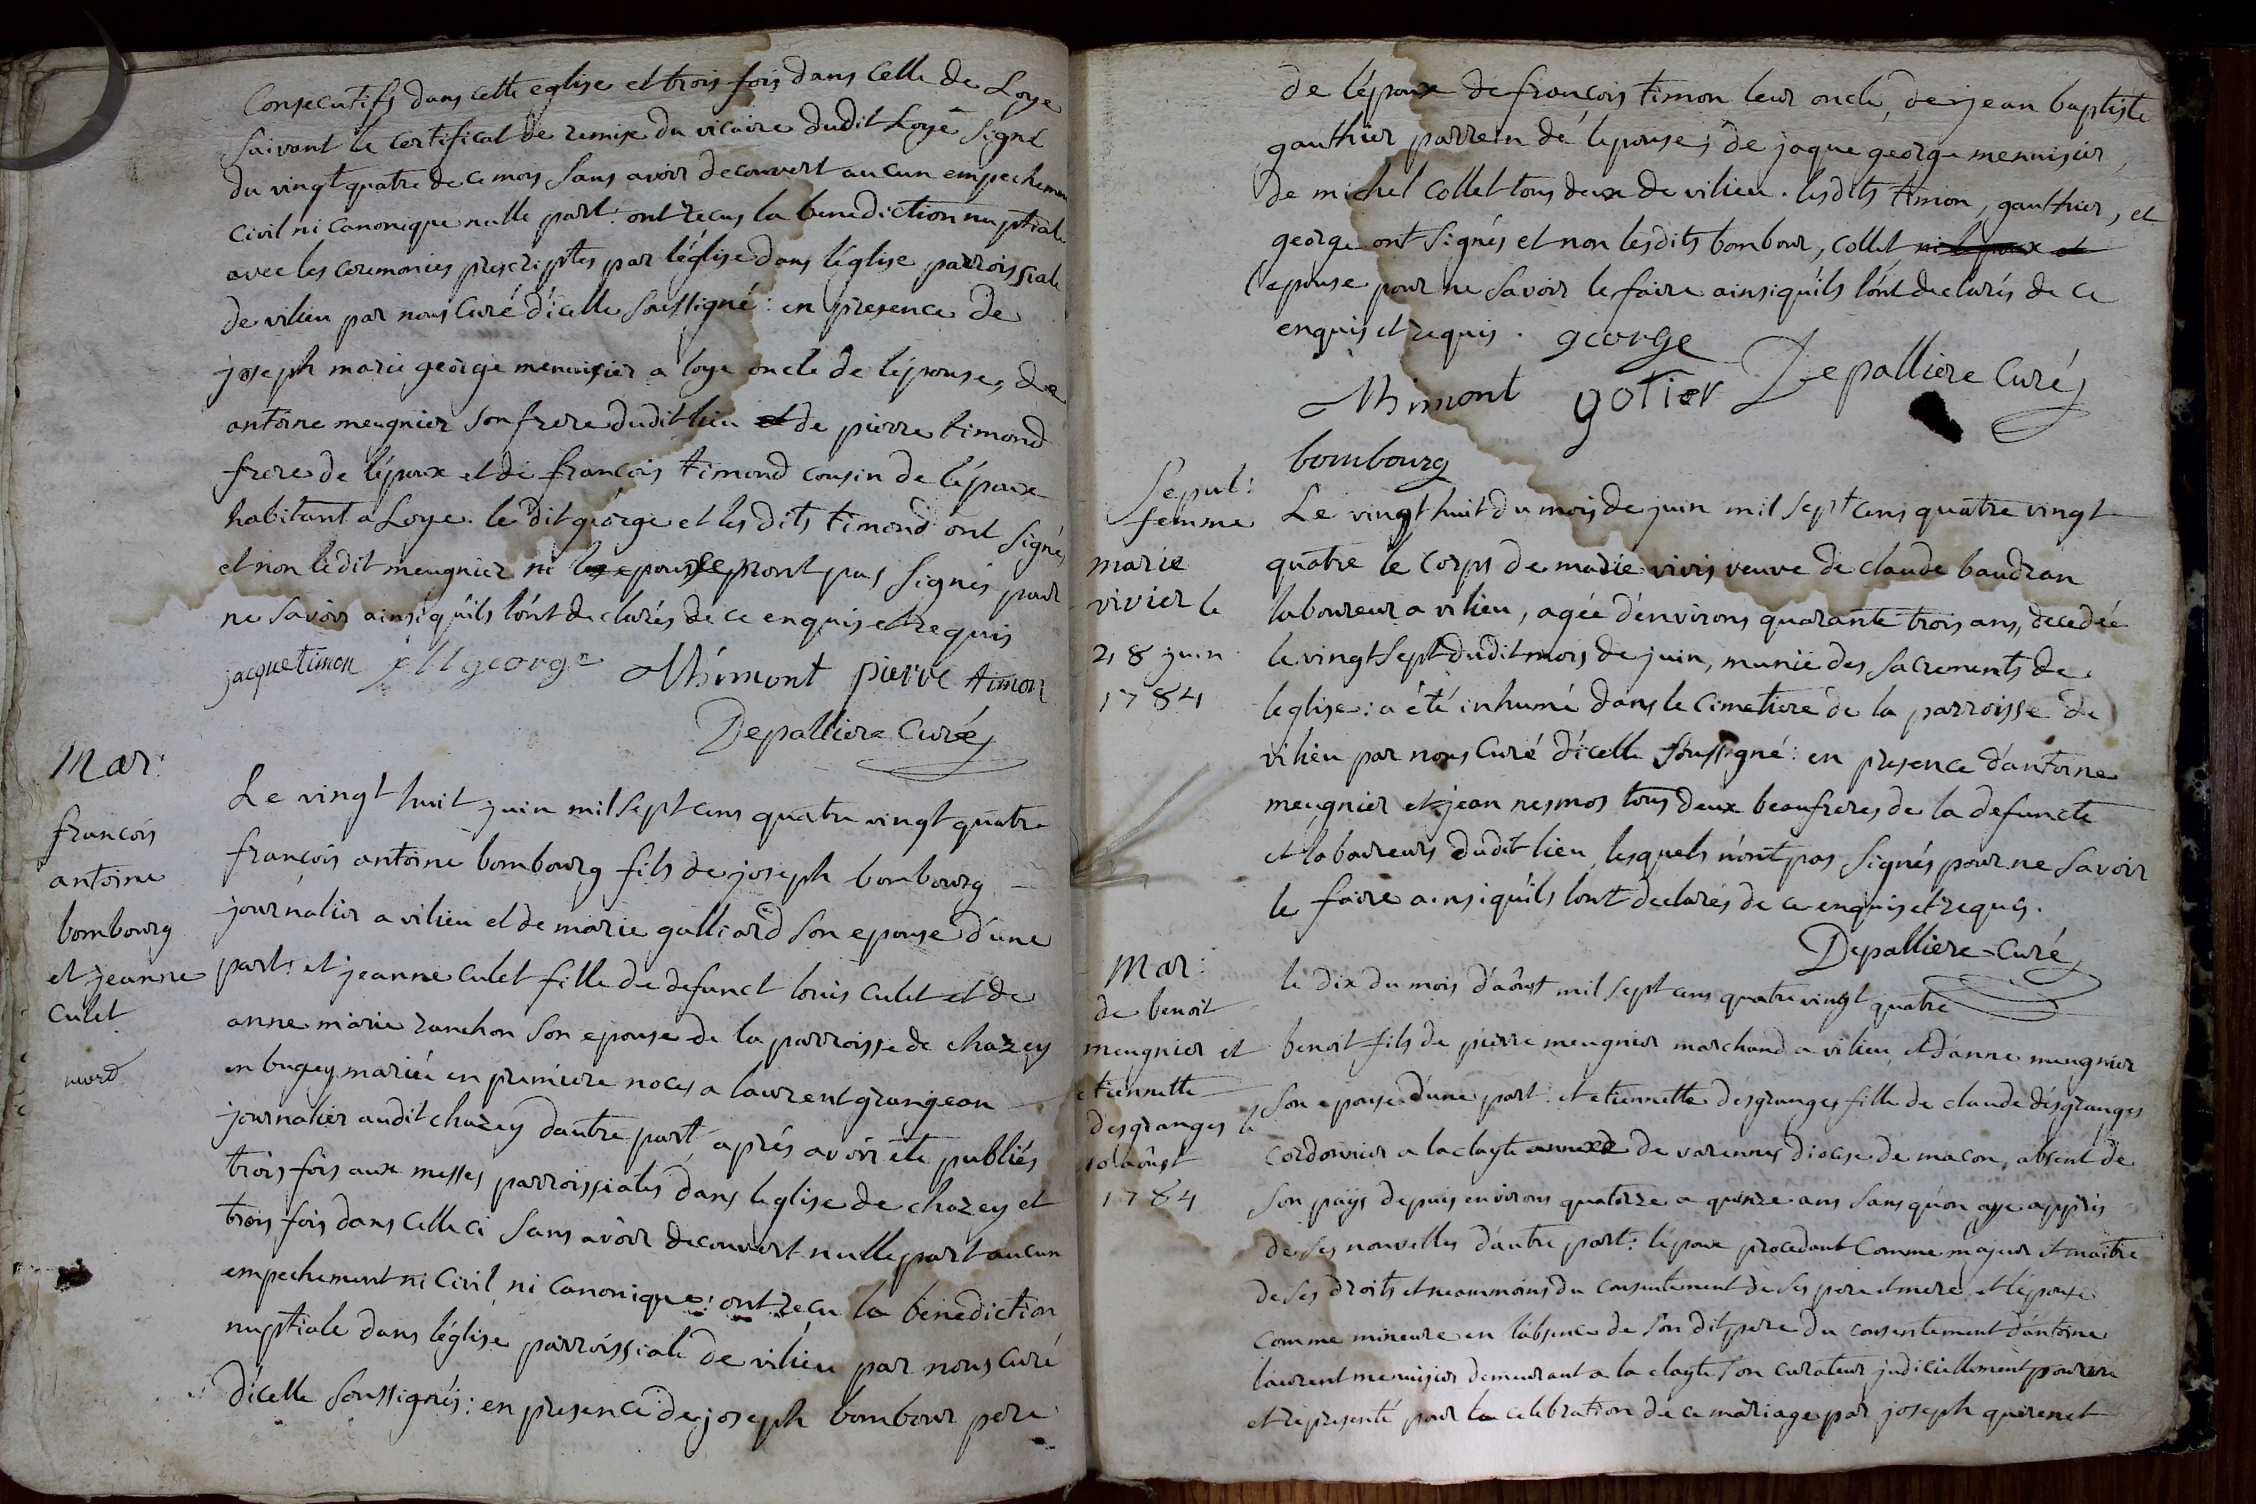 Consecutifs dans cette eglise et trois fois dans celle de Loye
suivant le certificat de remise du vicaire dudit Loye signé
du vingt quatre de ce mois sans avoir decouvert aucun empechement
civil ni canonique nulle part: ont recus la benediction nuptiale
avec les ceremonies prescriptes par l'église dans l'église parroissiale
de vilieu par nous Curé d'icelle soussigné: en presence de
joseph marie george menuisier a loye oncle de l'epouse, de
antoine meugnier son frere dudit lieu et de pierre timond
frere de l'époux et de françois timond cousin de l'époux
habitant a Loye. le dit george et les dits timond ont signés
et non ledit meugnier ni l'epouse n'ont pas signés pour
ne savoir ainsi qu'ils l'ont declarés de ce enquis et requis
jacque timon j M george Mhimont pierre timon
Depalliere Curé
Mar:
françois
antoine
bombourg
et jeanne
Culet
Le vingt huit juin mil sept cens quatre vingt quatre
françois antoine bombourg fils de joseph bombourg
journalier a vilieu et de marie galliard son epouse d'une
part: et jeanne culet fille de defunct louis culet et de
anne marie ranchon son epouse de la parroisse de chazey
en bugey mariée en premiere noces a laurent grangean
journalier audit chazey dautre part, aprés avoir été publiés
trois fois aux messes parroissiales dans l'eglise de chazey et
trois fois dans celle ci sans avoir decouvert nulle part aucun
empechement ni Civil ni canonique: ont recu la bénediction
nuptiale dans l'église parroissiale de vilieu par nous curé
d'icelle soussignés: en presence de joseph bombour pere
de l'époux de françois timon leur oncle, de jean baptiste
gauthier parrein de l'epouse, de jaque george menuisier,
de michel collet tous deux de vilieu. lesdits timon, gauthier, et
george ont signés et non lesdits bombour, collet ni l'epoux et
l'epouse pour ne savoir le faire ainsi qu'ils l'ont declarés de ce
enquis et requis. george
Mhimont gotier Depalliere Curé
bombourg
Sepul:
femme
marie
vivier le
28 juin
1784
Le vingt huit du mois de juin mil sept cens quatre vingt
quatre le corps de marie vivis veuve de claude baudran
laboureur a vilieu, agée d'environs quarante trois ans, decedée
le vingt sept dudit mois de juin, munie des sacrements de
l'eglise: a été inhumé dans le cimetiere de la parroisse de
vilieu par nous Curé d'icelle soussigné: en presence d'antoine
meugnier et jean nesmos tous deux beaufreres de la defuncte
et laboureurs dudit lieu lesquels n'ont pas signés pour ne savoir
le faire ainsi qu'ils l'ont declarés de ce enquis et requis.
Depalliere Curé
Mar:
de benoit
meugnier et
etiennette
desgranges le
10 aôust
1784
le dix du mois d'aôust mil sept cens quatre vingt quatre
benoit fils de pierre meugnier marchand a vilieu et d'anne meugnier
son epouse d'une part: et etiennette desgranges fille de claude desgranges
cordonnier a la clayte annexe de varennes diocese de macon, absent de
son pays depuis environs quatorze a quinze ans sans qu'on aye appris
de ses nouvelles d'autre part: l'époux procedant comme majeur et maitre
de ses droits et neammoins du consentement de ses pere et mere, et l'epouse
comme mineure en l'absence de son dit pere du consentement d'antoine
laurent menuisier demeurant a la clayte son curateur judiciellement pourvu
et representé pour la celebration de ce mariage par joseph querenet